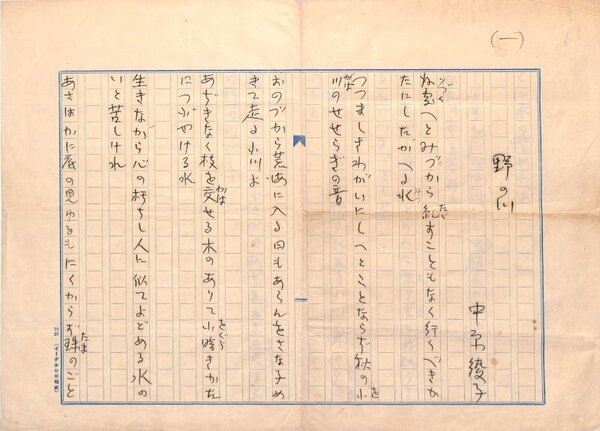 (一)
野の川
中原綾子
何処へとみづから糺すこともなく行くべきか
たにしたがへる水
つつましきわがいにしへとことならず秋の小
川のせせらぎの音
おのづから荒海に入る日もあらんをさな子め
きて走る小川よ
あぢきなく枝を交せる木のありて小暗きかた
につぶやける水
生きながら心の朽ちし人に似てよどめる水の
いと苦しけれ
あさはかに底の見ゆるもにくからず珠のごと